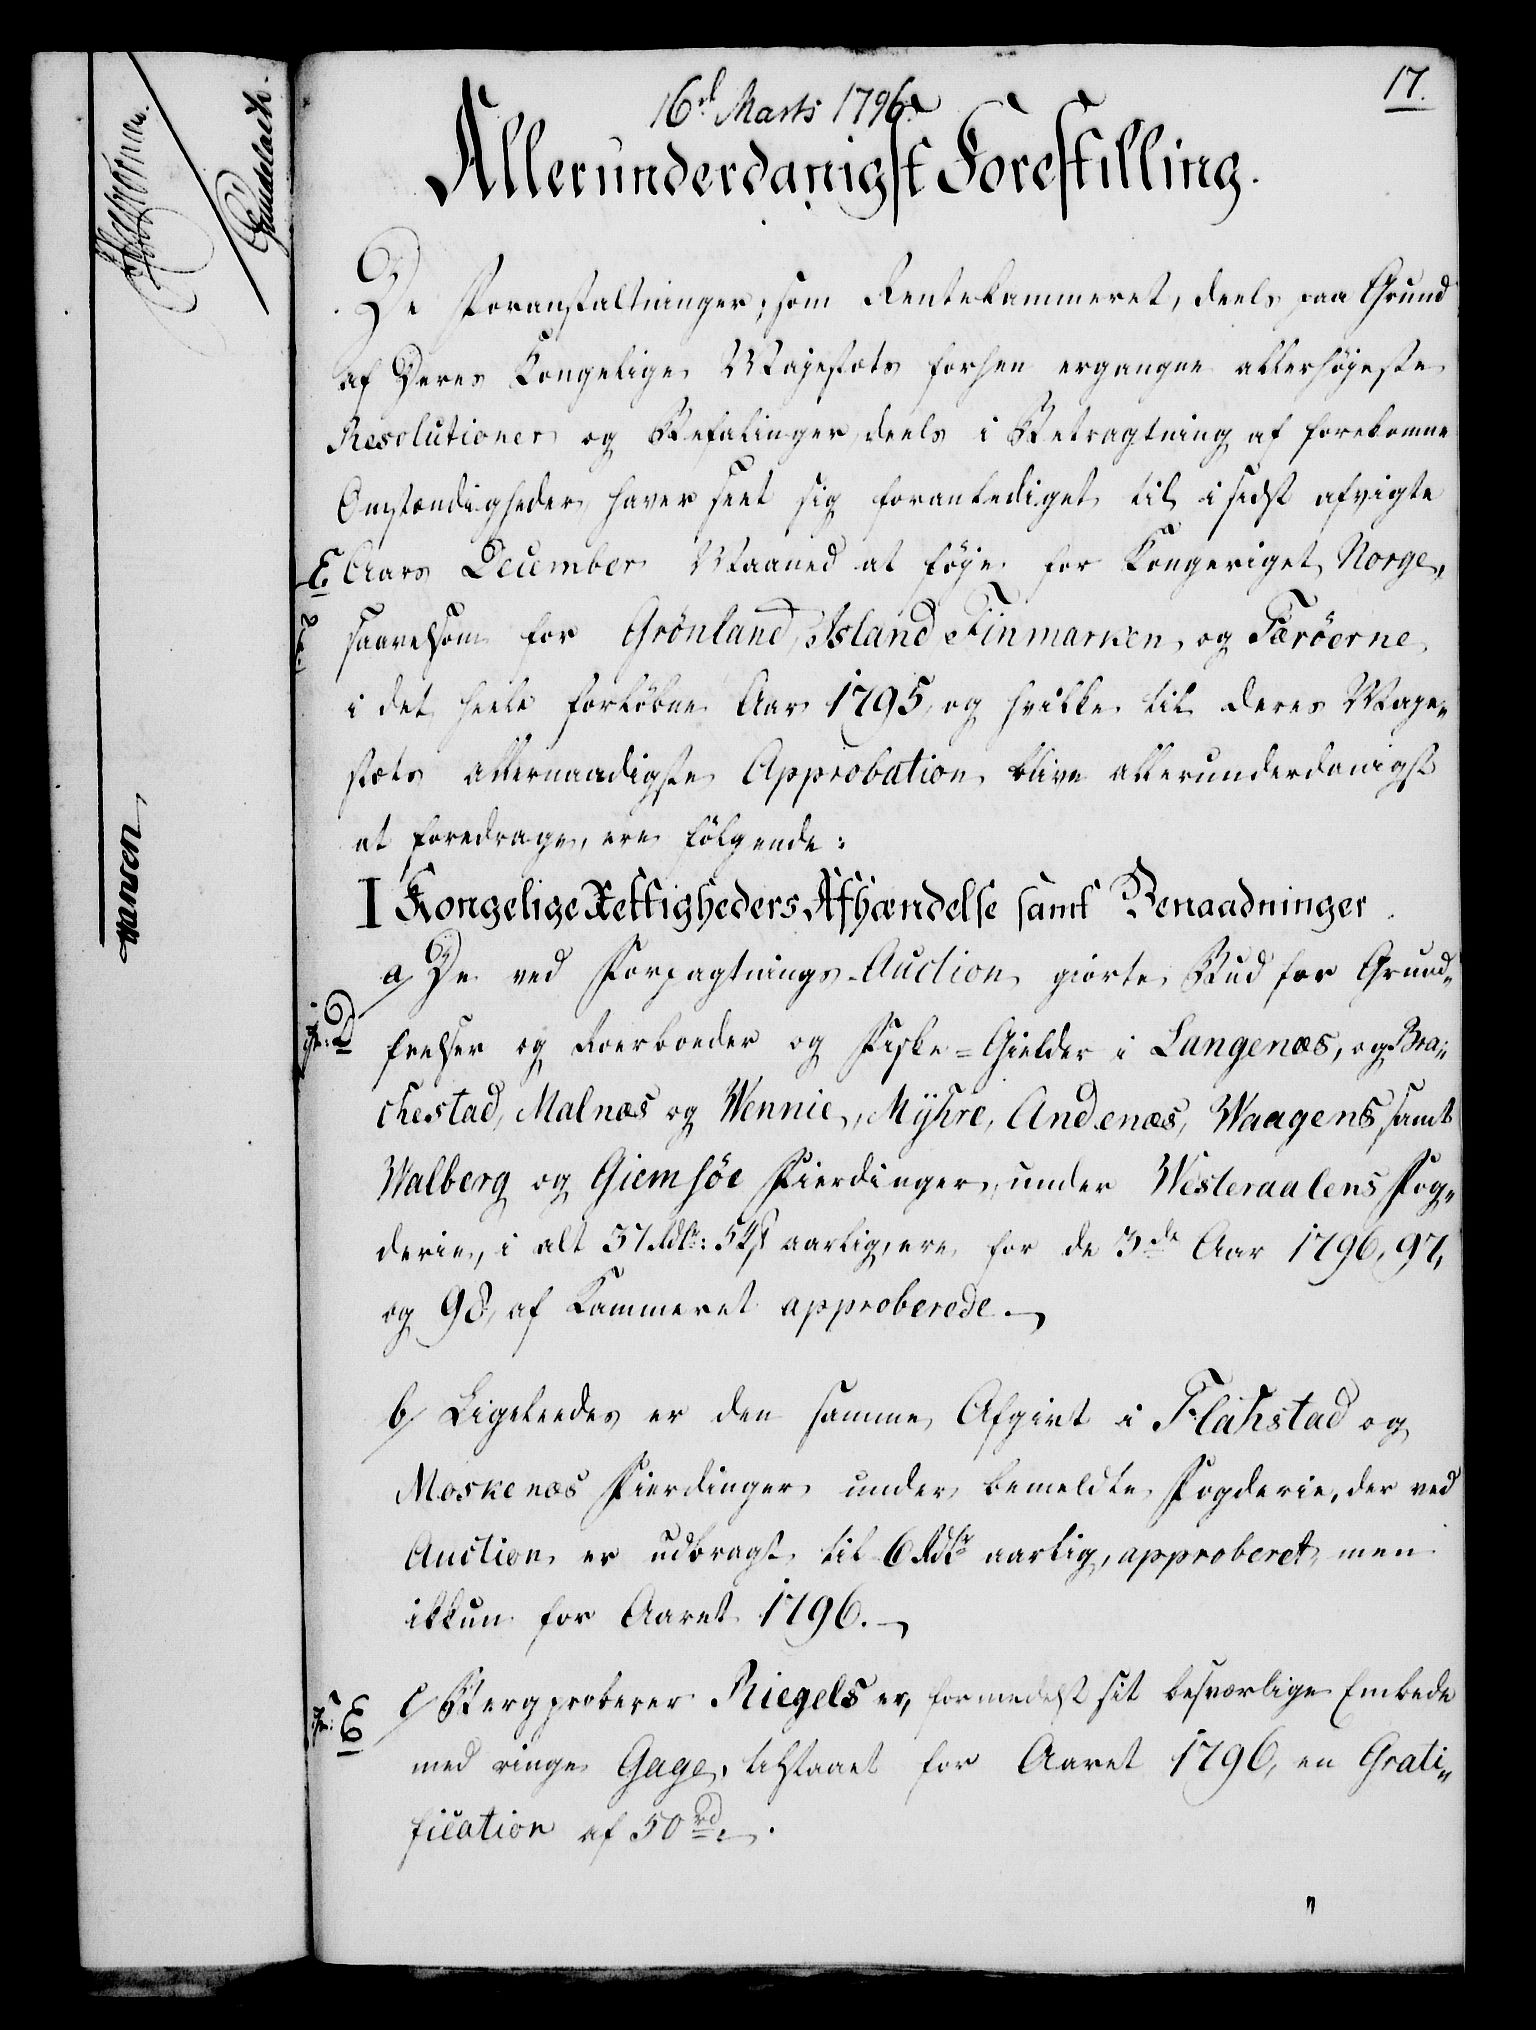 17.
16d Marts 1796.
Allerunderdanigst Forestilling.
De Foranstaltninger, som Rentekammeret, deels paa Grund
af Deres Kongelige Majestæts forhen ergangne allerhøjeste
Resolutioner og Befalinger, deels i Betragtning af forekomne
Omstændigheder, haver seet sig foranlediget til i sidst afvigte
Aars December Maaned at føje for Kongeriget Norge,
saavelsom for Grönland, Island Finmarken, og Færöerne
i det heele forløbne Aar 1795, og hvilke til Deres Maje„
stæts allernaadigste Approbation blive allerunderdanigst
at foredrage, ere følgende:
I Kongelige Rettigheders Afhændelse samt Benaadninger.
a/ De ved Forpagtnings-Auction giorte Bud for Grund„
frelser og Roerboeder og Fiske-Gielder i Langenæs, og Bra„
chestad, Malnæs og Wennie, Myhre, Andenæs, Waagens samt
Walberg og Giemsöe Fierdinger, under Westeraalens Fog„
derie, i alt 37 Rdlr: 5 aarlig, ere for de 3de Aar 1796, 97,
og 98, af Kammeret approberede.
b/ Ligeleedes er den samme Afgivt i Flakstad og
Moskenæs Fierdinger under bemeldte Fogderie, der ved
Auction er udbragt til 6 Rdlr aarlig, approberet, men
ikkun for Aaret 1796.
E
c/ Bergproberer Riegels er, formedelst sit besværlige Embede
med ringe Gage, tilstaaet for Aaret 1796, en Grati„
fication af 50 rd.